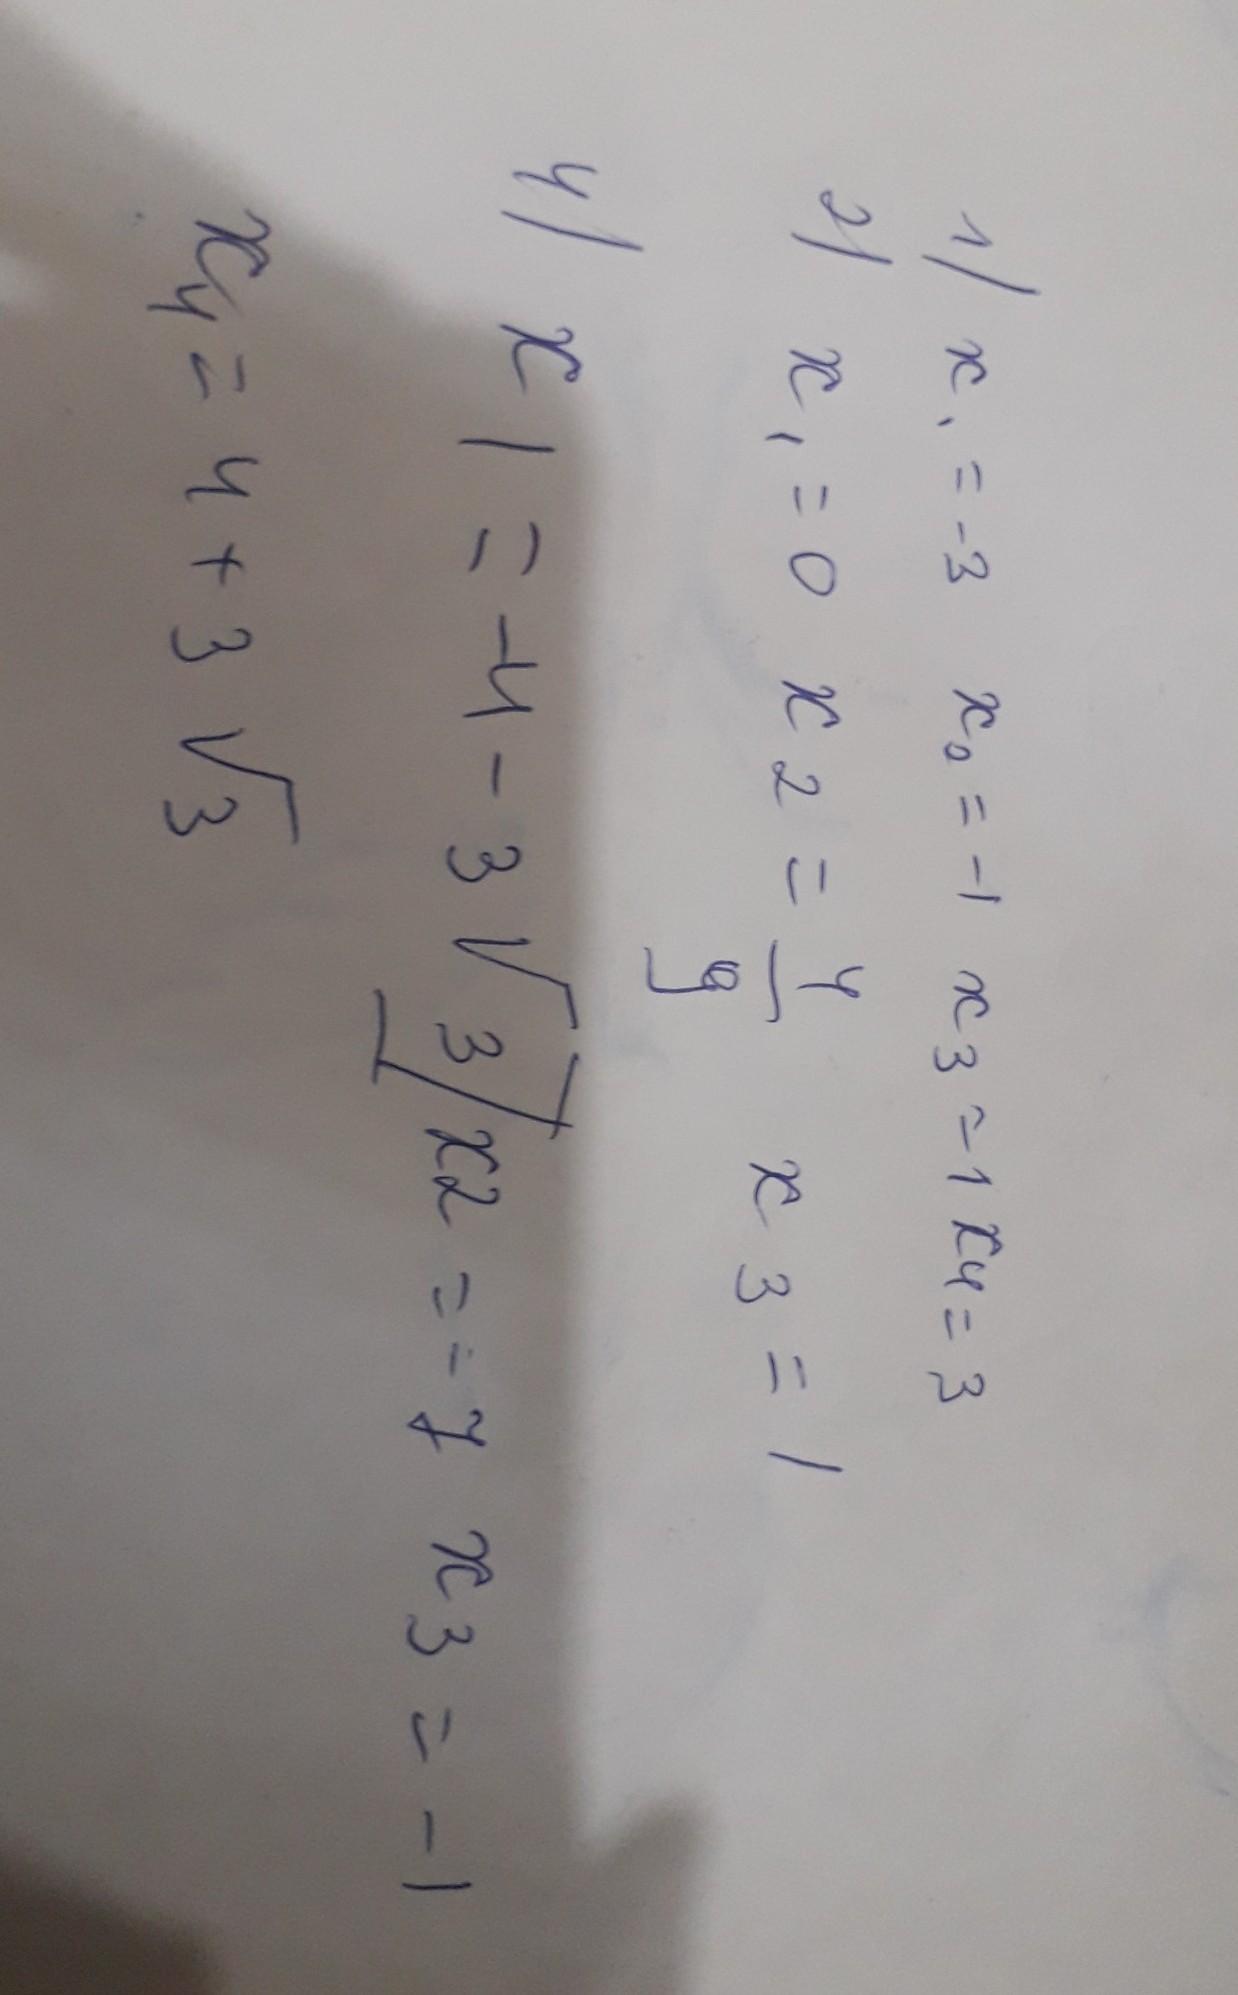 1/ x₁ = -3 x₂ = -1 x3 = 1 x4 = 3
2/ x₁ = 0 x2 = 4/9 x3 = 1
4/ x1 = -4 - 3√3 / x2 = -7 x3 = -1
x4 = 4 + 3√3